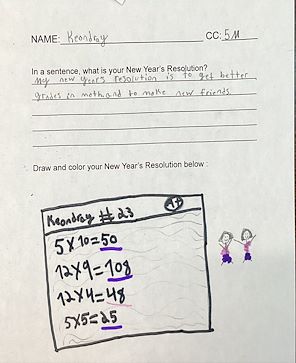 NAME: Keondray CC: 5M
In a sentence, what is your New Year's Resolution?
My new years resolution is to get better
grades in math and to make new friends.
Draw and color your New Year's Resolution below :
Keondray # 23 A+
5x10=50
12x9=108
12x4=48
5x5=25